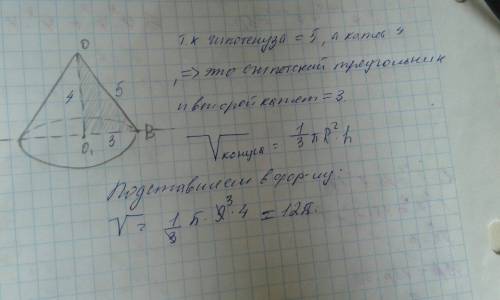 O
4
5
O₁
3
B
Т.к гипотенуза = 5, а катет 4
, => это египетский треугольник
и второй катет = 3.
V конуса = 1/3 πR²·h
Подставляем в фор-лу:
V = 1/3 π · 3 · 4 = 12π.